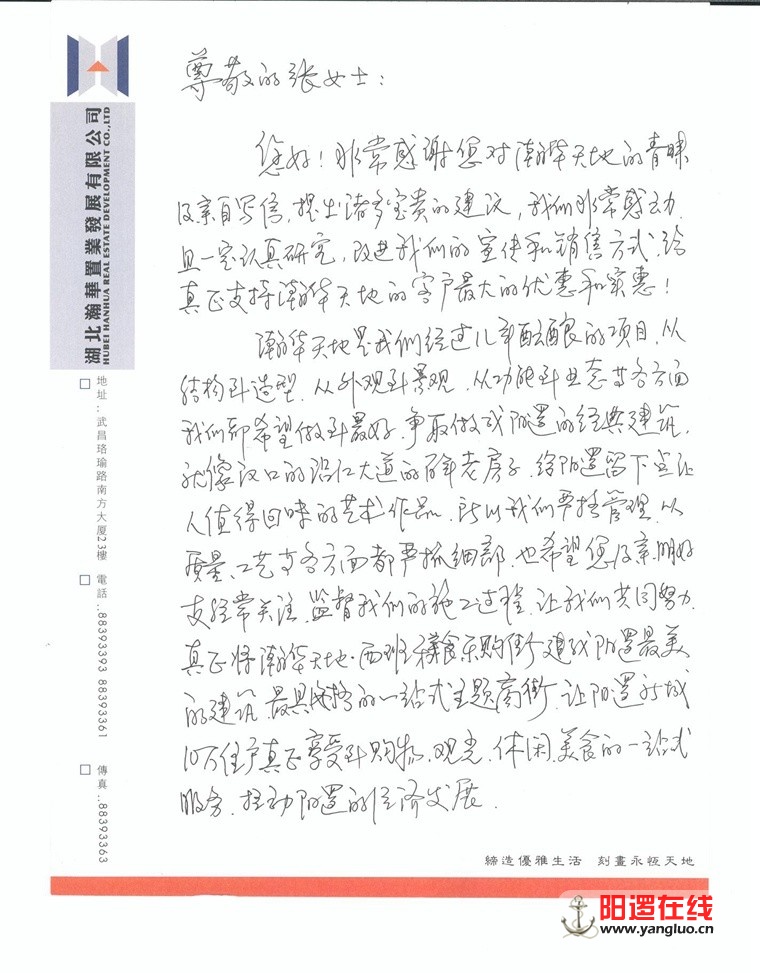 尊敬的张女士：
您好！非常感谢您对瀚华天地的青睐
及亲自写信，提出诸多宝贵的建议，我们非常感动，
且一定认真研究，改进我们的宣传和销售方式，给
真正支持瀚华天地的客户最大的优惠和实惠！
瀚华天地是我们经过几年酝酿的项目，从
结构到造型，从外观到景观，从功能到业态等各方面
我们都希望做到最好，争取做成阳逻的经典建筑，
就像汉口的沿江大道的百年老房子，给阳逻留下些让
人值得回味的艺术作品，所以我们严格管理，从
质量、工艺等各方面都严抓细部，也希望您及亲朋好
友经常关注、监督我们的施工过程，让我们共同努力，
真正将瀚华天地·西班牙美食乐购街建成阳逻最美
的建筑，最具风格的一站式主题商街，让阳逻新城
10万住户真正享受到购物、观光、休闲、美食的一站式
服务，拉动阳逻的经济发展。
湖北瀚華置業發展有限公司
HUBEI HANHUA REAL ESTATE DEVELOPMENT CO.,LTD
地址：武昌珞瑜路南方大厦23樓
電話：88393393 88393361
傳真：88393363
締造優雅生活 刻畫永恆天地
阳逻在线
www.yangluo.cn